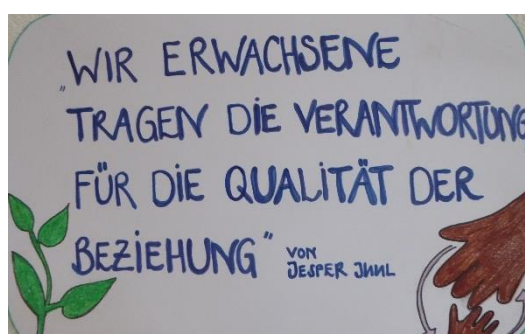 „WIR ERWACHSENE
TRAGEN DIE VERANTWORTUNG
FÜR DIE QUALITÄT DER
BEZIEHUNG" VON
JESPER JUUL